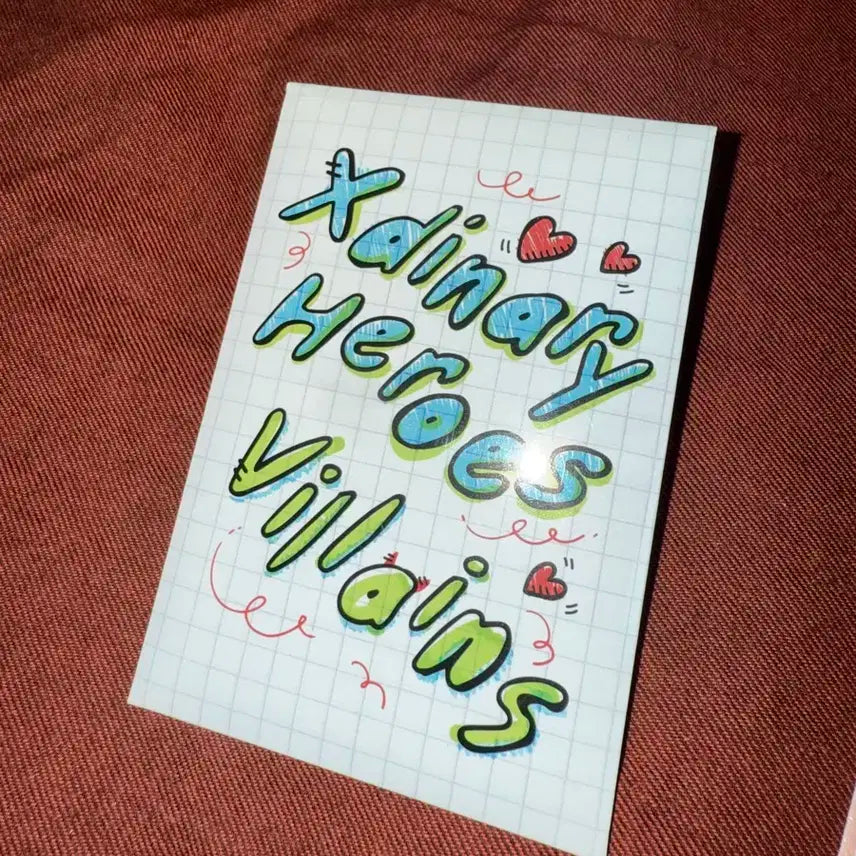 Xdinary
Heroes
Villains